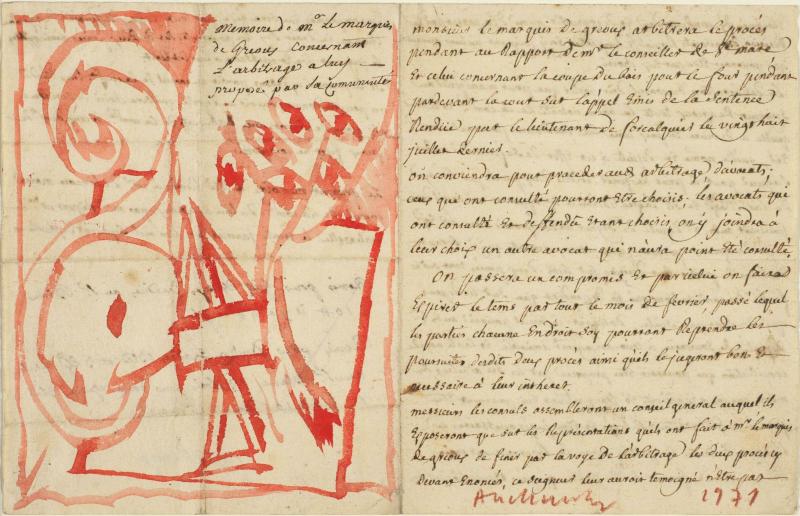 Memoire de mr. le marquis
de Greoux concernant
L'arbitrage a luy
proposé par sa communauté
monsieur le marquis de greoux arbitrera le procès
pendant au Rapport de mr. le conseiller de St. marc
Et celui concernant la coupe du bois pour le four pendant
pardevant la cour sur l'appel Emis de la sentence
Rendüe par le lieutenant de forcalquier le vingt huit
juillet dernier.
on conviendra pour proceder aud. arbitrage d'avocats;
ceux que ont consulté pourront Etre choisis; les avocats qui
ont consulté Et deffendu Etant choisis, on y joindra à
leur choix un autre avocat qui n'aura point Eté consulté.
On passera un compromis Et par icelui on faira
Expirer le tems par tout le mois de fevrier, passé lequel
les parties chacune En droit soy pourront Reprendre les
poursuites desdits deux procès ainsi qu'els le jugeront bon Et
necessaire à leur interet.
messieurs les consuls assembleront un conseil general auquel ils
Exposeront que sur les Representations qu'ils ont fait à mr. le marquis
de greoux de finir par la voye de l'arbitrage les deux procès cy
devant Enoncés, ce seigneur leur auroit temoigné n'etre pas
1971